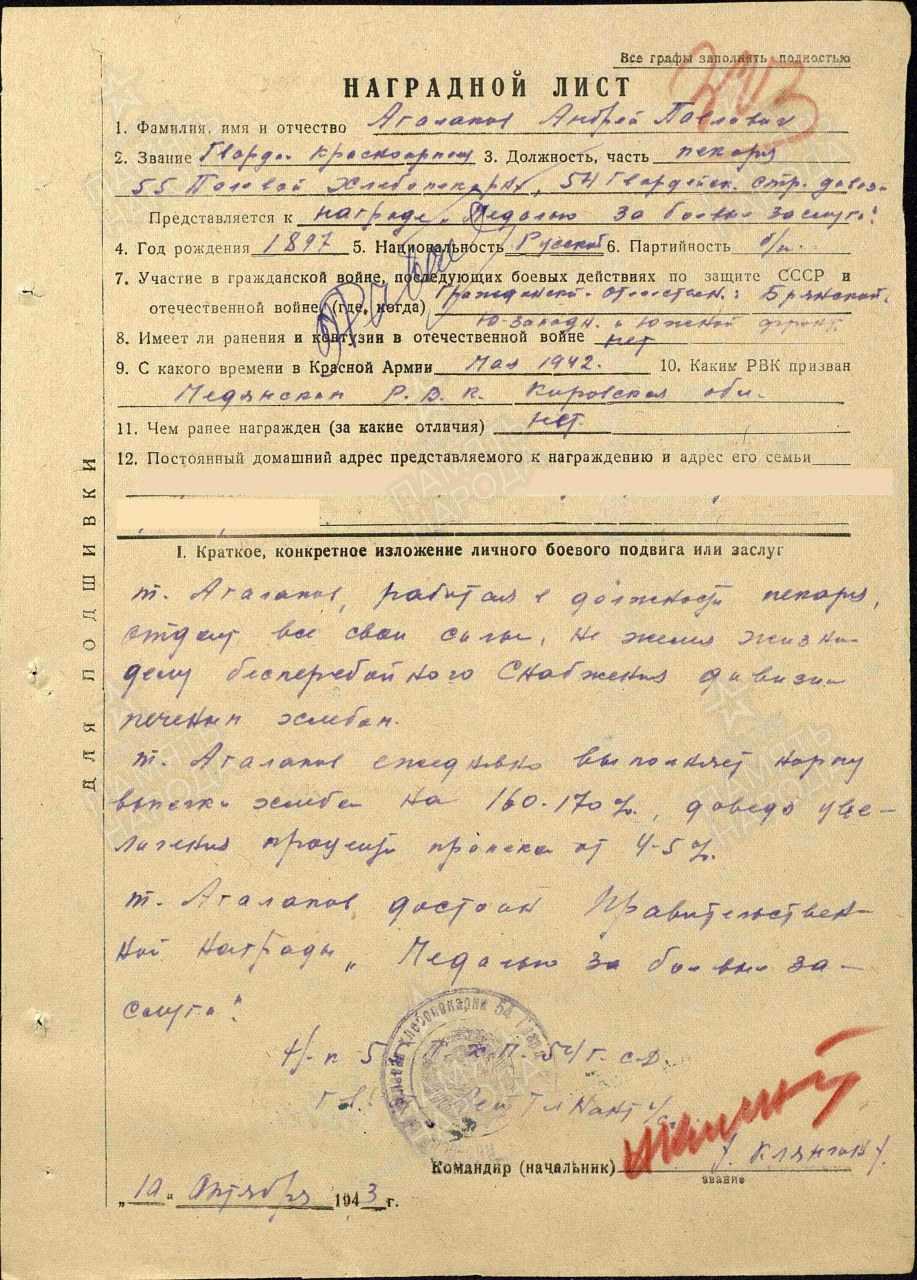 Все графы заполнять полностью
НАГРАДНОЙ ЛИСТ
1. Фамилия, имя и отчество Агалаков Андрей Павлович
2. Звание Гвардии красноармеец 3. Должность, часть пекаря
55 Полевой Хлебопекарни, 54 Гвардейск. стр. дивиз.
Представляется к награде „Медалью за боевые заслуги“
4. Год рождения 1897 5. Национальность Русский 6. Партийность б/п.
7. Участие в гражданской войне, последующих боевых действиях по защите СССР и
отечественной войне (где, когда) Гражданской. Отечествен.: Брянской.
Ю-Западн. и Южной фронт
8. Имеет ли ранения и контузии в отечественной войне нет
9. С какого времени в Красной Армии Мая 1942. 10. Каким РВК призван
Медянским Р.В.К. Кировская обл.
11. Чем ранее награжден (за какие отличия) нет
12. Постоянный домашний адрес представляемого к награждению и адрес его семьи
ДЛЯ ПОДШИВКИ
I. Краткое, конкретное изложение личного боевого подвига или заслуг
т. Агалаков, работая в должности пекаря,
отдает все свои силы, не жалея жизни
делу бесперебойного снабжения дивизии
печеным хлебом.
т. Агалаков ежедневно выполняет норму
выпечки хлеба на 160-170%, доведя уве-
личения процента припека от 4-5%.
т. Агалаков достоин Правительствен-
ной награды „Медалью за боевые за-
слуги“.
П.Х.П. 54 г.с.д.
Гв. ст. лейтенант и/с
Командир (начальник)
звание
„10“ Октября 1943 г.